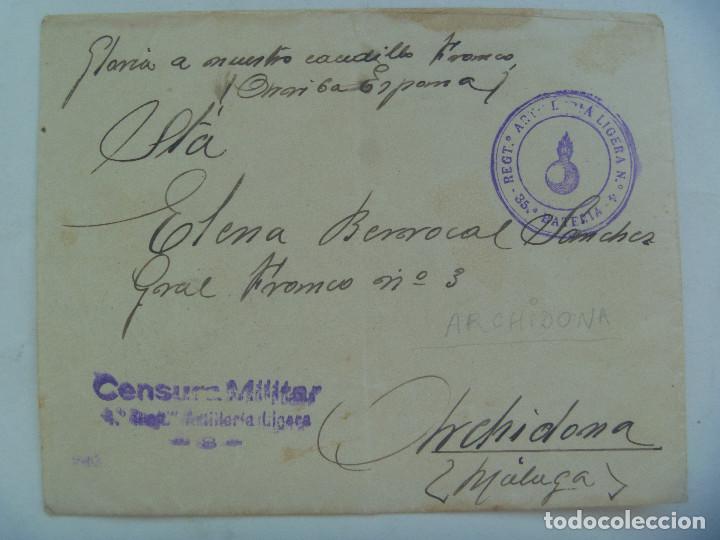 Gloria a nuestro caudillo Franco,
(Arriba España)
REGT.º ARTILLERIA LIGERA N.º 4
35.ª BATERIA
Stá
Elena Berrocal Sanchez
Gral Franco nº 3
ARCHIDONA
Censura Militar
4.º Regt.º Artillería Ligera
- 8 -
Archidona
(Málaga)
todocoleccion.net